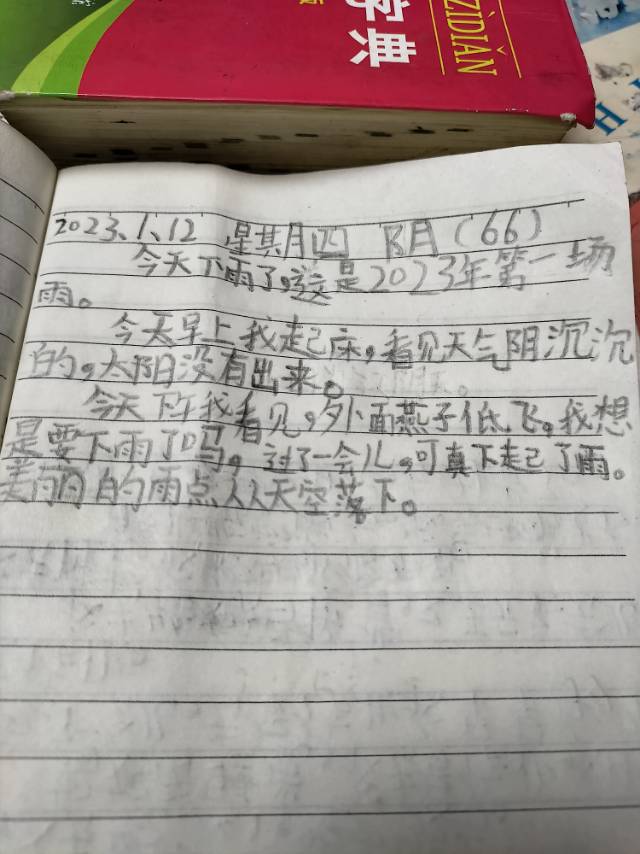 字典
ZÌDIǍN
版
2023、1、12 星其月四 阴(66)
今天下雨了,这是2023年第一场
雨。
今天早上我起床,看见天气阴沉沉
的,太阳没有出来。
今天下午我看见,外面燕子低飞,我想
是要下雨了吗,过了一会儿,可真下起了雨。
美丽的雨点从天空落下。